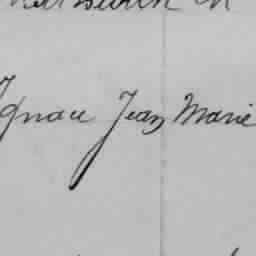 Ignace Jean Marie